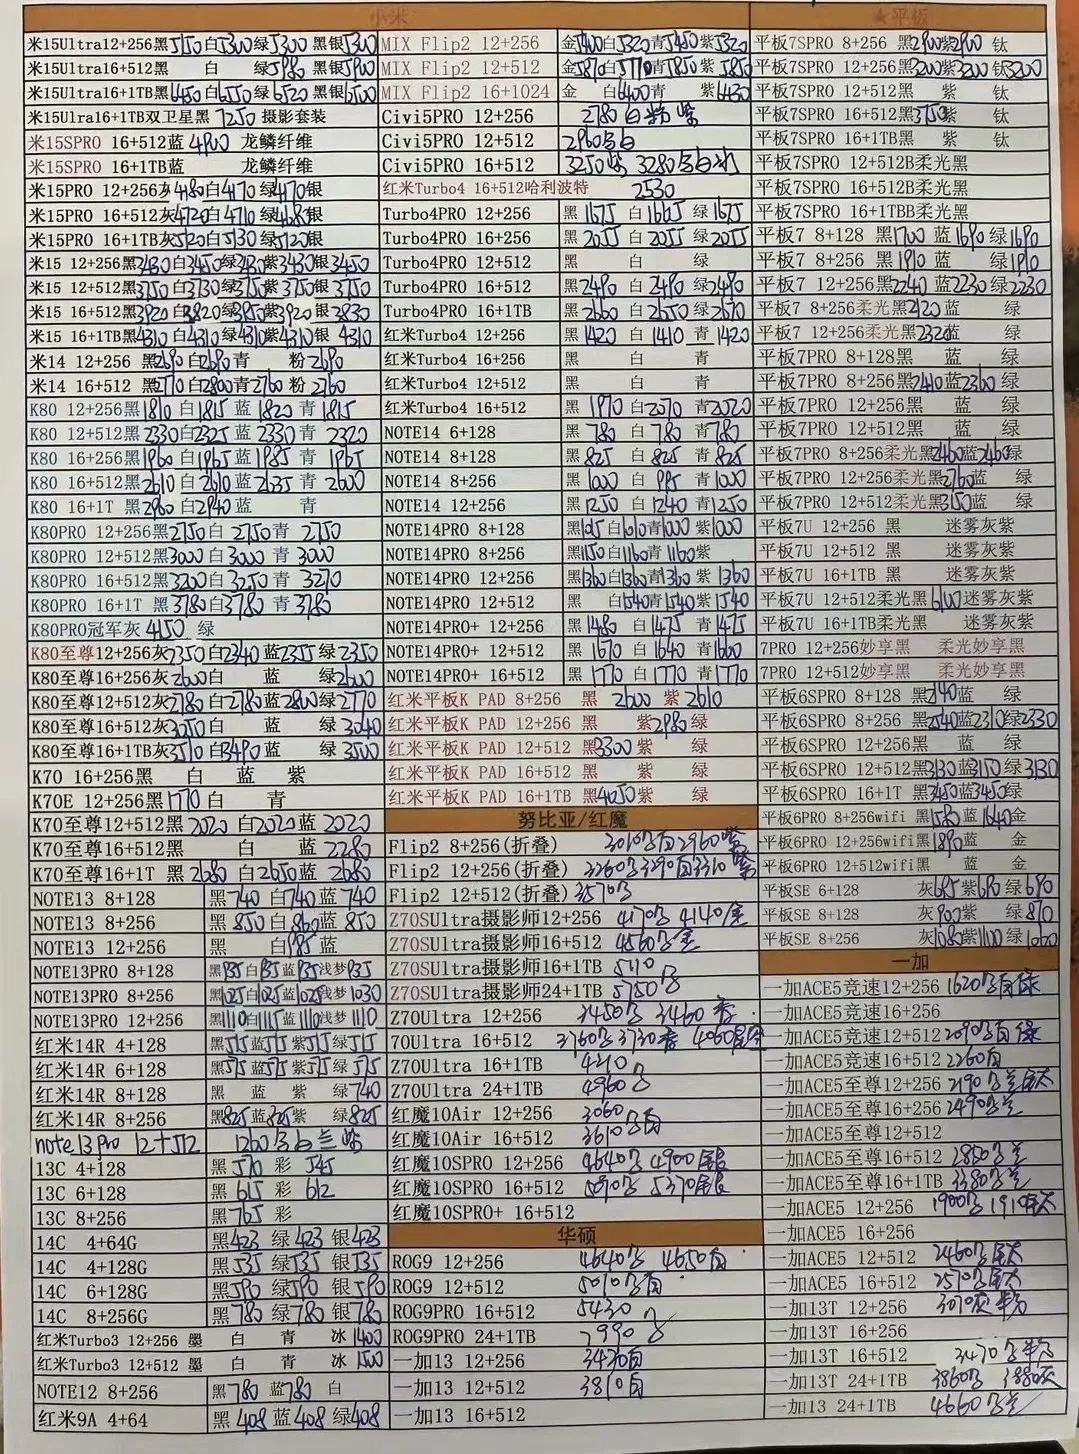 小米
米15Ultra12+256黑5150白5300绿5300 黑银5300
米15Ultra16+512黑 白 绿5980 黑银5900
米15Ultra16+1TB黑6450白6550绿6520 黑银6500
米15Ulra16+1TB双卫星黑 7250 摄影套装
米15SPRO 16+512蓝 4900 龙鳞纤维
米15SPRO 16+1TB蓝 龙鳞纤维
米15PRO 12+256灰4180白4170 绿4170银
米15PRO 16+512灰4720白4710 绿4685银
米15PRO 16+1TB灰5120白5130 绿5120银
米15 12+256黑3430白3450绿3430紫3430银 3450
米15 12+512黑3750白3730绿3750紫3750银 3750
米15 16+512黑3920白3820绿3850紫3920银 3830
米15 16+1TB黑4310白4310绿4310紫4310银 4310
米14 12+256 黑2680白2690青 粉2690
米14 16+512 黑2770白2800青2760 粉2760
K80 12+256黑1810 白1815 蓝1820 青1815
K80 12+512黑2330白2325 蓝2330青 2320
K80 16+256黑1960 白1965 蓝1985 青1965
K80 16+512黑2610 白2610 蓝2635 青2600
K80 16+1T 黑2960白2940蓝 青
K80PRO 12+256黑2750白 2750青 2750
K80PRO 12+512黑3000白3000 青 3000
K80PRO 16+512黑3200白3250 青 3270
K80PRO 16+1T 黑3780白3780 青3780
K80PRO冠军灰 4150 绿
K80至尊12+256灰2350白2340蓝2355 绿2350
K80至尊16+256灰2600白 蓝 绿2600
K80至尊12+512灰2780白2780蓝2800绿2770
K80至尊16+512灰3050白 蓝 绿 3040
K80至尊16+1TB灰3510白3490蓝 绿3500
K70 16+256黑 白 蓝 紫
K70E 12+256黑1770白 青
K70至尊12+512黑 2020 白2020蓝 2020
K70至尊16+512黑 白 蓝 2280
K70至尊16+1T 黑2680 白2650蓝 2680
NOTE13 8+128 黑740 白740蓝740
NOTE13 8+256 黑850白860蓝850
NOTE13 12+256 黑 白985蓝
NOTE13PRO 8+128 黑935白935蓝935浅梦935
NOTE13PRO 8+256 黑1025白1025蓝1025浅梦1030
NOTE13PRO 12+256 黑1110白1115蓝1110浅梦1110
红米14R 4+128 黑515蓝515紫515绿515
红米14R 6+128 黑575蓝575紫575绿575
红米14R 8+128 黑 蓝 紫 绿740
红米14R 8+256 黑825蓝825紫 绿825
note13pro 12+512 1260黑白兰紫
13C 4+128 黑 570 彩 545
13C 6+128 黑 615 彩 612
13C 8+256 黑 765 彩
14C 4+64G 黑423 绿423 银423
14C 4+128G 黑535 绿535 银535
14C 6+128G 黑590 绿590 银590
14C 8+256G 黑780 绿780 银780
红米Turbo3 12+256 墨 白 青 冰1400
红米Turbo3 12+512 墨 白 青 冰1500
NOTE12 8+256 黑780 蓝780 白
红米9A 4+64 黑408蓝408绿408
MIX Flip2 12+256 金5400白5320青5450紫5320
MIX Flip2 12+512 金5870白5770青5850紫5850
MIX Flip2 16+1024 金 白6400青 紫6430
Civi5PRO 12+256 2780白粉紫
Civi5PRO 12+512 2960黑白
Civi5PRO 16+512 3250紫 3280黑白
红米Turbo4 16+512哈利波特 2530
Turbo4PRO 12+256 黑1675 白1665 绿1675
Turbo4PRO 16+256 黑2055 白2055 绿2055
Turbo4PRO 12+512 黑 白 绿
Turbo4PRO 16+512 黑2490 白2490 绿2490
Turbo4PRO 16+1TB 黑2660 白2650 绿2670
红米Turbo4 12+256 黑1420 白1410 青1420
红米Turbo4 16+256 黑 白 青
红米Turbo4 12+512 黑 白 青
红米Turbo4 16+512 黑 1970 白2070 青2020
NOTE14 6+128 黑780 白780 青780
NOTE14 8+128 黑825 白825 青825
NOTE14 8+256 黑1000 白995 青1000
NOTE14 12+256 黑1250 白1240 青1250
NOTE14PRO 8+128 黑1015白1010青1000 紫1000
NOTE14PRO 8+256 黑1150白1160青1160紫
NOTE14PRO 12+256 黑1360白1360青1360 紫1360
NOTE14PRO 12+512 黑 白1540青1540紫1540
NOTE14PRO+ 12+256 黑1480 白1475 青1475
NOTE14PRO+ 12+512 黑1670 白1640 青1660
NOTE14PRO+ 16+512 黑1770 白1770 青1770
红米平板K PAD 8+256 黑 2600 紫2610
红米平板K PAD 12+256 黑 紫2980绿
红米平板K PAD 12+512 黑3300紫 绿
红米平板K PAD 16+512 黑 紫 绿
红米平板K PAD 16+1TB 黑4050紫 绿
努比亚/红魔
Flip2 8+256(折叠) 3010黑白2960紫
Flip2 12+256(折叠) 3260黑3290白3310紫
Flip2 12+512(折叠) 3570黑
Z70SUltra摄影师12+256 4170黑 4140金
Z70SUltra摄影师16+512 4560黑金
Z70SUltra摄影师16+1TB 5110
Z70SUltra摄影师24+1TB 5750黑
Z70Ultra 12+256 3450黑 3460青
70Ultra 16+512 3760黑3730青 4060
Z70Ultra 16+1TB 4210
Z70Ultra 24+1TB 4960黑
红魔10Air 12+256 3060
红魔10Air 16+512 3610黑白
红魔10SPRO 12+256 4640黑 4900银
红魔10SPRO 16+512 5090黑 5370银
红魔10SPRO+ 16+512
华硕
ROG9 12+256 4640黑 4650白
ROG9 12+512 5010黑白
ROG9PRO 16+512 5430
ROG9PRO 24+1TB 7990黑
一加13 12+256 3430白
一加13 12+512 3810白
一加13 16+512
★平板
平板7SPRO 8+256 黑2900紫2900 钛
平板7SPRO 12+256黑3200紫3200 钛3200
平板7SPRO 12+512黑 紫 钛
平板7SPRO 16+512黑3750紫 钛
平板7SPRO 16+1TB黑 紫 钛
平板7SPRO 12+512B柔光黑
平板7SPRO 16+512B柔光黑
平板7SPRO 16+1TBB柔光黑
平板7 8+128 黑1700 蓝1690 绿1690
平板7 8+256 黑1910 蓝 绿1910
平板7 12+256黑2240 蓝2230绿2230
平板7 8+256柔光黑2120 蓝 绿
平板7 12+256柔光黑2320蓝 绿
平板7PRO 8+128黑 蓝 绿
平板7PRO 8+256黑2410蓝2360 绿
平板7PRO 12+256黑 蓝 绿
平板7PRO 12+512黑 蓝 绿
平板7PRO 8+256柔光黑2460蓝2460绿
平板7PRO 12+256柔光黑2760蓝 绿
平板7PRO 12+512柔光黑3150蓝 绿
平板7U 12+256 黑 迷雾灰紫
平板7U 12+512 黑 迷雾灰紫
平板7U 16+1TB 黑 迷雾灰紫
平板7U 12+512柔光黑6100迷雾灰紫
平板7U 16+1TB柔光黑 迷雾灰紫
7PRO 12+256妙享黑 柔光妙享黑
7PRO 12+512妙享黑 柔光妙享黑
平板6SPRO 8+128 黑2140蓝 绿
平板6SPRO 8+256 黑2540蓝2310绿2330
平板6SPRO 12+256黑 蓝 绿
平板6SPRO 12+512黑3130蓝3150绿3130
平板6SPRO 16+1T 黑3450蓝3450绿
平板6PRO 8+256wifi 黑1580 蓝1640金
平板6PRO 12+256wifi黑1890蓝 金
平板6PRO 12+512wifi黑 蓝 金
平板SE 6+128 灰685紫690绿690
平板SE 8+128 灰900紫 绿870
平板SE 8+256 灰1080紫1100绿1060
一加
一加ACE5竞速12+256 1620黑白绿
一加ACE5竞速16+256
一加ACE5竞速12+512 2090黑白绿
一加ACE5竞速16+512 2260白
一加ACE5至尊12+256 2190黑兰钛
一加ACE5至尊16+256 2490黑兰
一加ACE5至尊12+512
一加ACE5至尊16+512 2850黑兰
一加ACE5至尊16+1TB 3380黑兰
一加ACE5 12+256 1900黑 1910钛
一加ACE5 16+256
一加ACE5 12+512 2460黑钛
一加ACE5 16+512 2570黑钛
一加13T 12+256 3070灰粉
一加13T 16+256
一加13T 16+512 3470黑粉
一加13T 24+1TB 3860黑 3880灰
一加13 24+1TB 4660黑兰